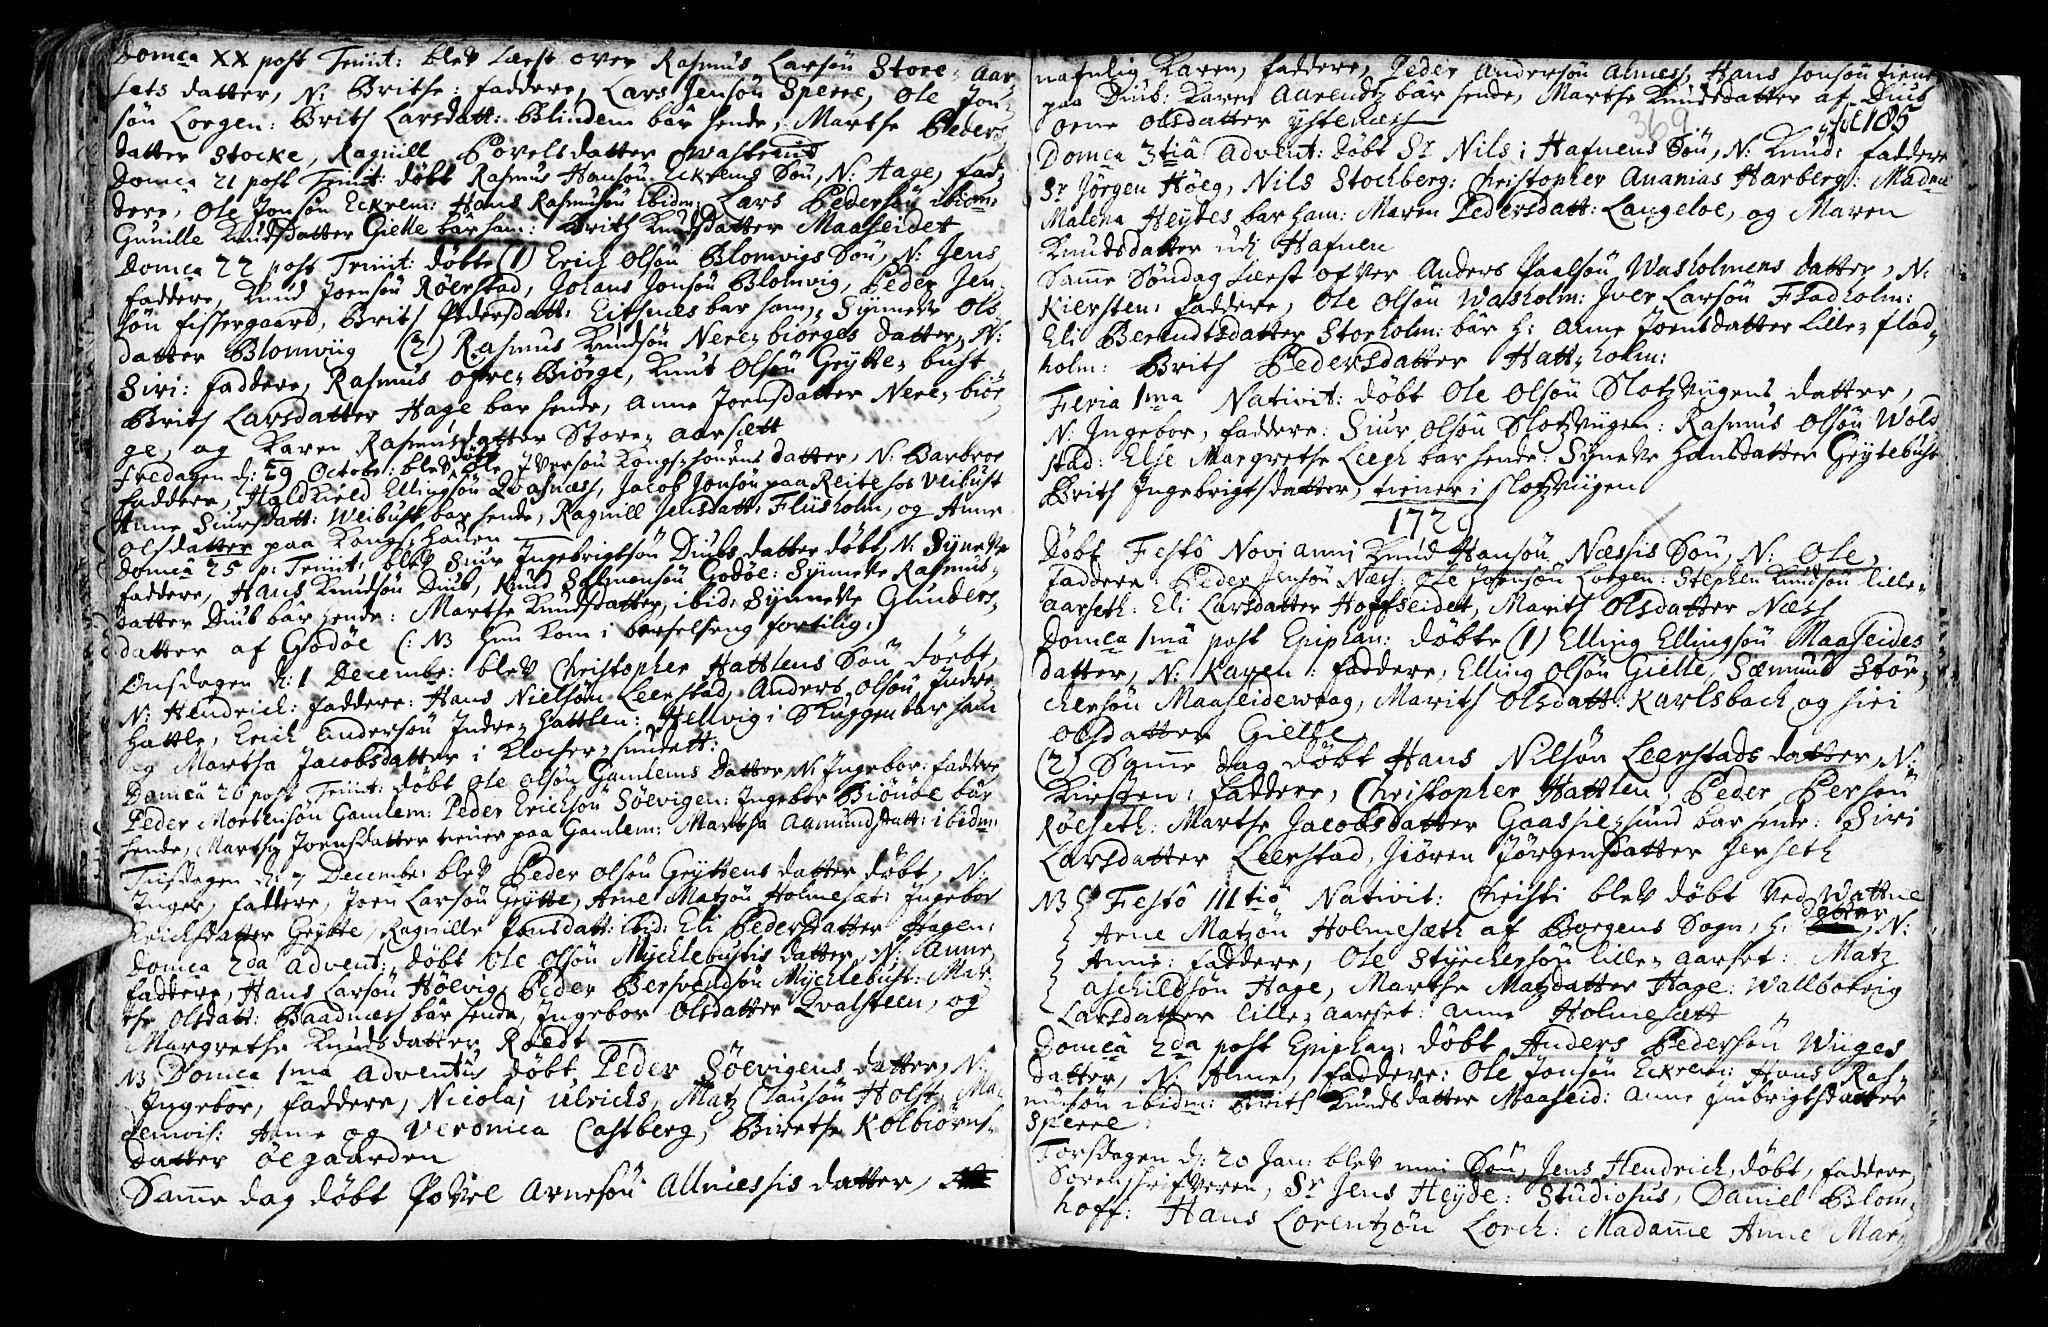 Domca XX post Trinit: blev læst over Rasmus Larsøn Store- Aar-
sets datter, N: Brithe: faddere, Lars Jensøn Sperre, Ole Jon-
søn Lorgen: Brith Larsdatt: Blindem bar hende, Marthe Peders-
datter Stocke, Ragnill Povelsdatter Wastrand
Domca 21 post Trinit: døbt Rasmus Hansøn Eckrems Søn, N: Aage, fad-
dere, Ole Jonsøn Eckrem: Hans Rasmusøn ibidm: Lars Pedersøn ibidm:
Gunille Knudsdatter Gielle bar ham: Brith Knudsdatter Maaseidet
Domca 22 post Trinit: døbte (1) Erich Olsøn Blomvigs Søn, N: Jens
faddere, Knud Joensøn Røerstad, Johans Jonsøn Blomvig, Peder Jen-
søn fiskergaard, Brith Pedersdatt: Eitsnes bar ham, Synneve Ols-
datter Blomviig (2) Rasmus Knudsøn Nere-biørges datter, N:
Siri: faddere, Rasmus ofre-Biørge, Knut Olsøn Grytte-bust
Brith Larsdatter Hage bar hende, Anne Joensdatter Nere-biør-
ge, og Karen Rasmusdatter Store-aarsætt
fredagen d: 29 Octobr: blev døbt Ole Iversøn Kongs-honens datter, N: Barbroe
faddere, Haldkield Ellingsøn Qvasnæss, Jacob Jonsøn paa Reite hos Veibust
Anne Siursdatt: Weibust bar hende, Ragnill Jensdatt: Fliisholm, og Anne
olsdatter paa Kongs-honen
Domca 25 p: Trinit: blev Siur Ingebrigtsøn Diubs datter døbt, N: Syneve
faddere, Hans Knudsøn Diub, Knud Salmonsøn Godøe: Synneve Rasmus-
datter Diub bar hende: Marthe Knudsdatter, ibid: Synneve Gunders-
datter af Godøe (: NB hun kom i barselseng fortilig:)
Onsdagen d: 1 Decembr: blev Christopher Hattlens Søn døebt,
N: Hendrich: faddere: Hans Nielsøn Leerstad, Anders Olsøn Indre
Hattle, Erich Andersøn Indre-Hattlen: Hellvig i Skuggen bar ham
og Martha Jacobsdatter i Klocker-sundett:
Domca 26 post Trinit: døbt Ole Olsøn Gamlems Datter, N: Ingebor: faddere
Peder Mortensøn Gamlem: Peder Erichsøn Søevigen: Ingebor Biønøe bar
hende, Marthe Joensdatter tiener paa Gamlem: Martha Aamundsdatt: ibidm:
Tiisdagen d: 7 Decembr: blev Peder Olsøn Gryttens datter døbt, N:
Inger, faddere, Joen Larsøn Grytte, Arne Matzøn Holmesæt: Ingebor
Erichsdatter Grytte, Ragnille Jonsdatt: ibid: Eli Pedersdatter Hagen:
Domca 2da Advent: døbt Ole Olsøn Mychlebustis datter, N: Anne,
faddere, Hans Larsøn Høevig, Peder Bersvendsøn Mychlebust: Mar-
the Olsdatt: Baadnæss bar hende, Ingebor Olsdatter Qvalsteen, og
Margrethe Knudsdatter Røedt
NB Domca 1ma Adventûs døbt Peder Søevigens datter, N:
Ingebor, faddere, Nicolaj Ulrichs, Matz Clausøn Holst: Ma-
demois: Anne og Veronica Castberg, Birethe Kolbiørns-
datter Øegaarden
Samme dag døbt Povel Arnesøn Allnessis datter,
nafnlig Karen, faddere, Peder Andersøn Alness, Hans Jonsøn tiener
paa Diub: Karen Aarendtz bar hende, Marthe Knudsdatter af Diub
Oene Olsdatter ystenæss
369
fol 185
Domca 3tiâ Advent: døbt Sr Nils i Hafnens Søn, N: Knud: faddere
Sr Jørgen Høeg, Nils Stochberg: Christopher Ananias Harberg: Madme
Malena Heydes bar ham: Maren Pedersdatt: Langeloe, og Maren
Knudsdatter udj Hafnen
Samme Søndag læst ofver Anders Paalsøn Washolmens datter, N:
Kiersten: faddere, Ole Olsøn Washolm: Iver Larsøn Fladholm:
Eli Berendtsdatter Storholm: bar h: Anne Joensdatter Lille-flad-
holm: Brith Pedersdatter Hatt-holm:
Feria 1ma Nativit: døbt Ole Olsøn Slotzviigens datter,
N: Ingebor, faddere: Siur Olsøn Slotzviigen: Rasmus Olsøn Wold-
stad: Else Margrethe Leegh bar hende: Syneve Hansdatter Grytebust
Brith Ingebrigtsdatter, tiener i slotzviigen
1729
Døbt Festô Novi anni Knud Hansøn Næssis Søn, N: Ole,
faddere: Peder Jensøn Næss: Ole Joensøn Lorgen: Stephen Knudsøn lille-
aarseth: Eli Larsdatter Hoffseidet, Marith Olsdatter Næss
Domca 1mâ post Epiphan: døbte (1) Elling Ellingsøn Maaseides
datter, N: Karen: faddere, Elling Olsøn Gielle, Sæmund Stør-
chersøn Maaseidewaag, Marith Olsdatt: Karlsbach og siri
Olsdatter Gielle
(2) Samme dag døbt Hans Nilsøn Leerstads datter, N:
Kirsten: faddere, Christopher Hattlen, Peder Persøn
Røeseth: Marthe Jacobsdatter Gaasse-sund bar hende: Siri
Larsdatter Leerstad, Jiøren Jørgensdatter Jerseth
NB Festô IIItiô Nativit: Christi blev døbt ved Wattne
Arne Matzøn Holmesæth af Borgens Sogn, h: datter, N:
Anne: faddere, Ole Styrchersøn lille-aarset: Matz
Aschildsøn Hage, Marthe Matzdatter Hage: Wallborrig
Larsdatter lille-aarset: Anne Holmesætt
Domcâ 2da post Epiphan: døbt Anders Pedersøn Wiiges
datter, N: Anne, faddere: Ole Jonsøn Eckrem: Hans Ras-
musøn ibidm: Brith Knudsdatter Maaseid: Anne Imbrigtsdatter
Sperre:
Torsdagen d: 20 Jan: blev min Søn, Jens Hendrich, døbt, faddere,
Sorenschrifveren, Sr Jens Heyde: Studiosus, Daniel Blom-
hoff: Hans Lorentzøn Lorch: Madamme Anne Mar-